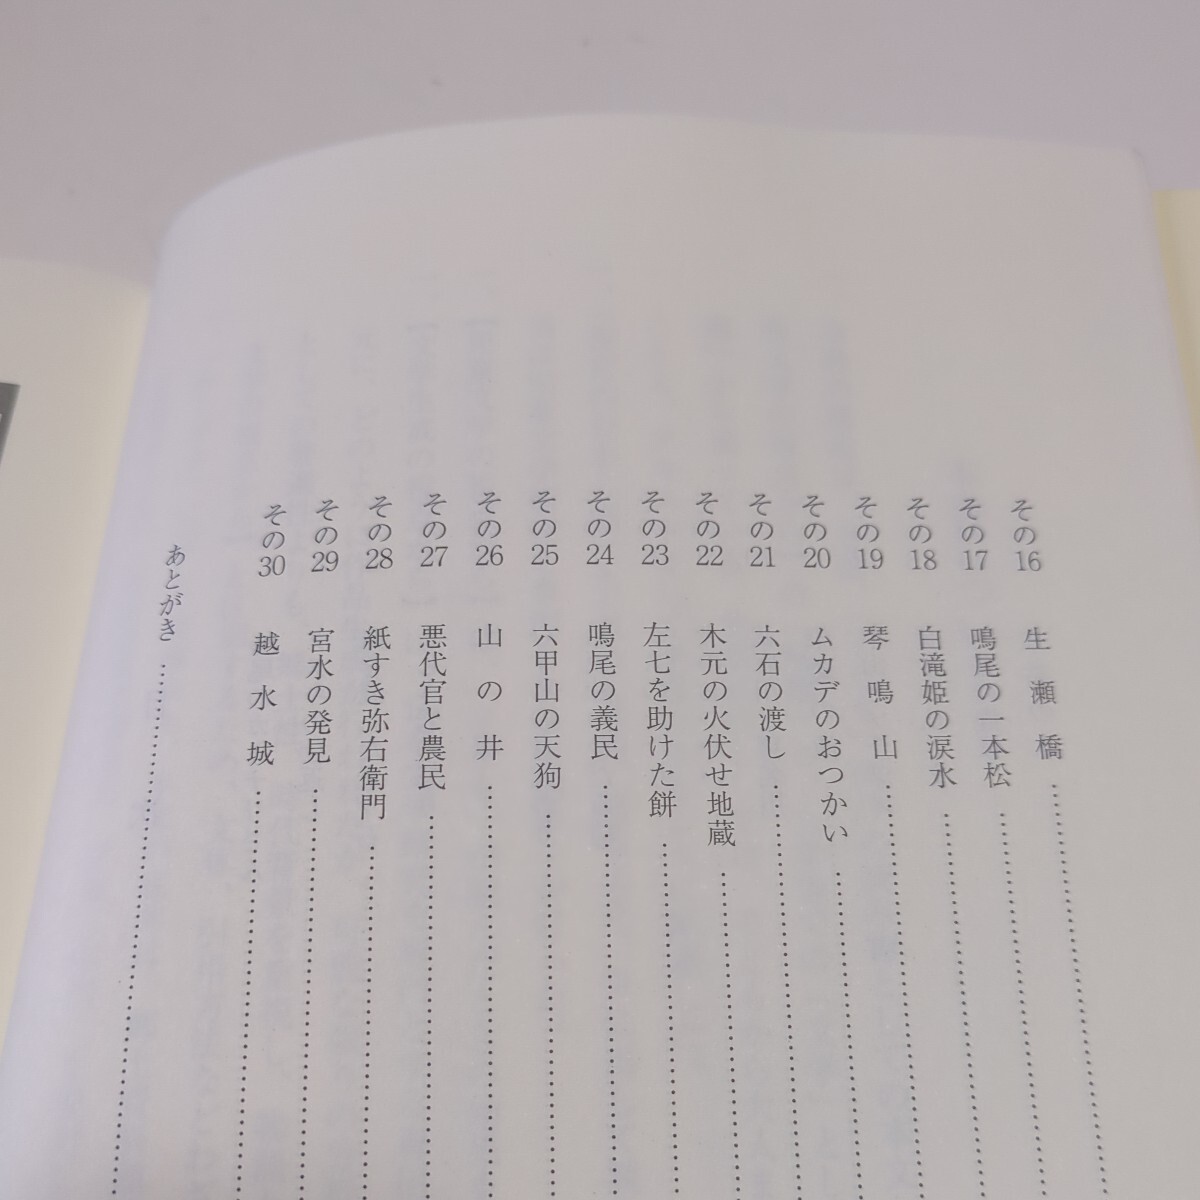 その16　生瀬橋…………
その17　鳴尾の一本松…………
その18　白滝姫の涙水…………
その19　琴鳴山…………
その20　ムカデのおつかい…………
その21　六石の渡し…………
その22　木元の火伏せ地蔵…………
その23　左七を助けた餅…………
その24　鳴尾の義民…………
その25　六甲山の天狗…………
その26　山の井…………
その27　悪代官と農民…………
その28　紙すき弥右衛門…………
その29　宮水の発見…………
その30　越水城…………
あとがき…………